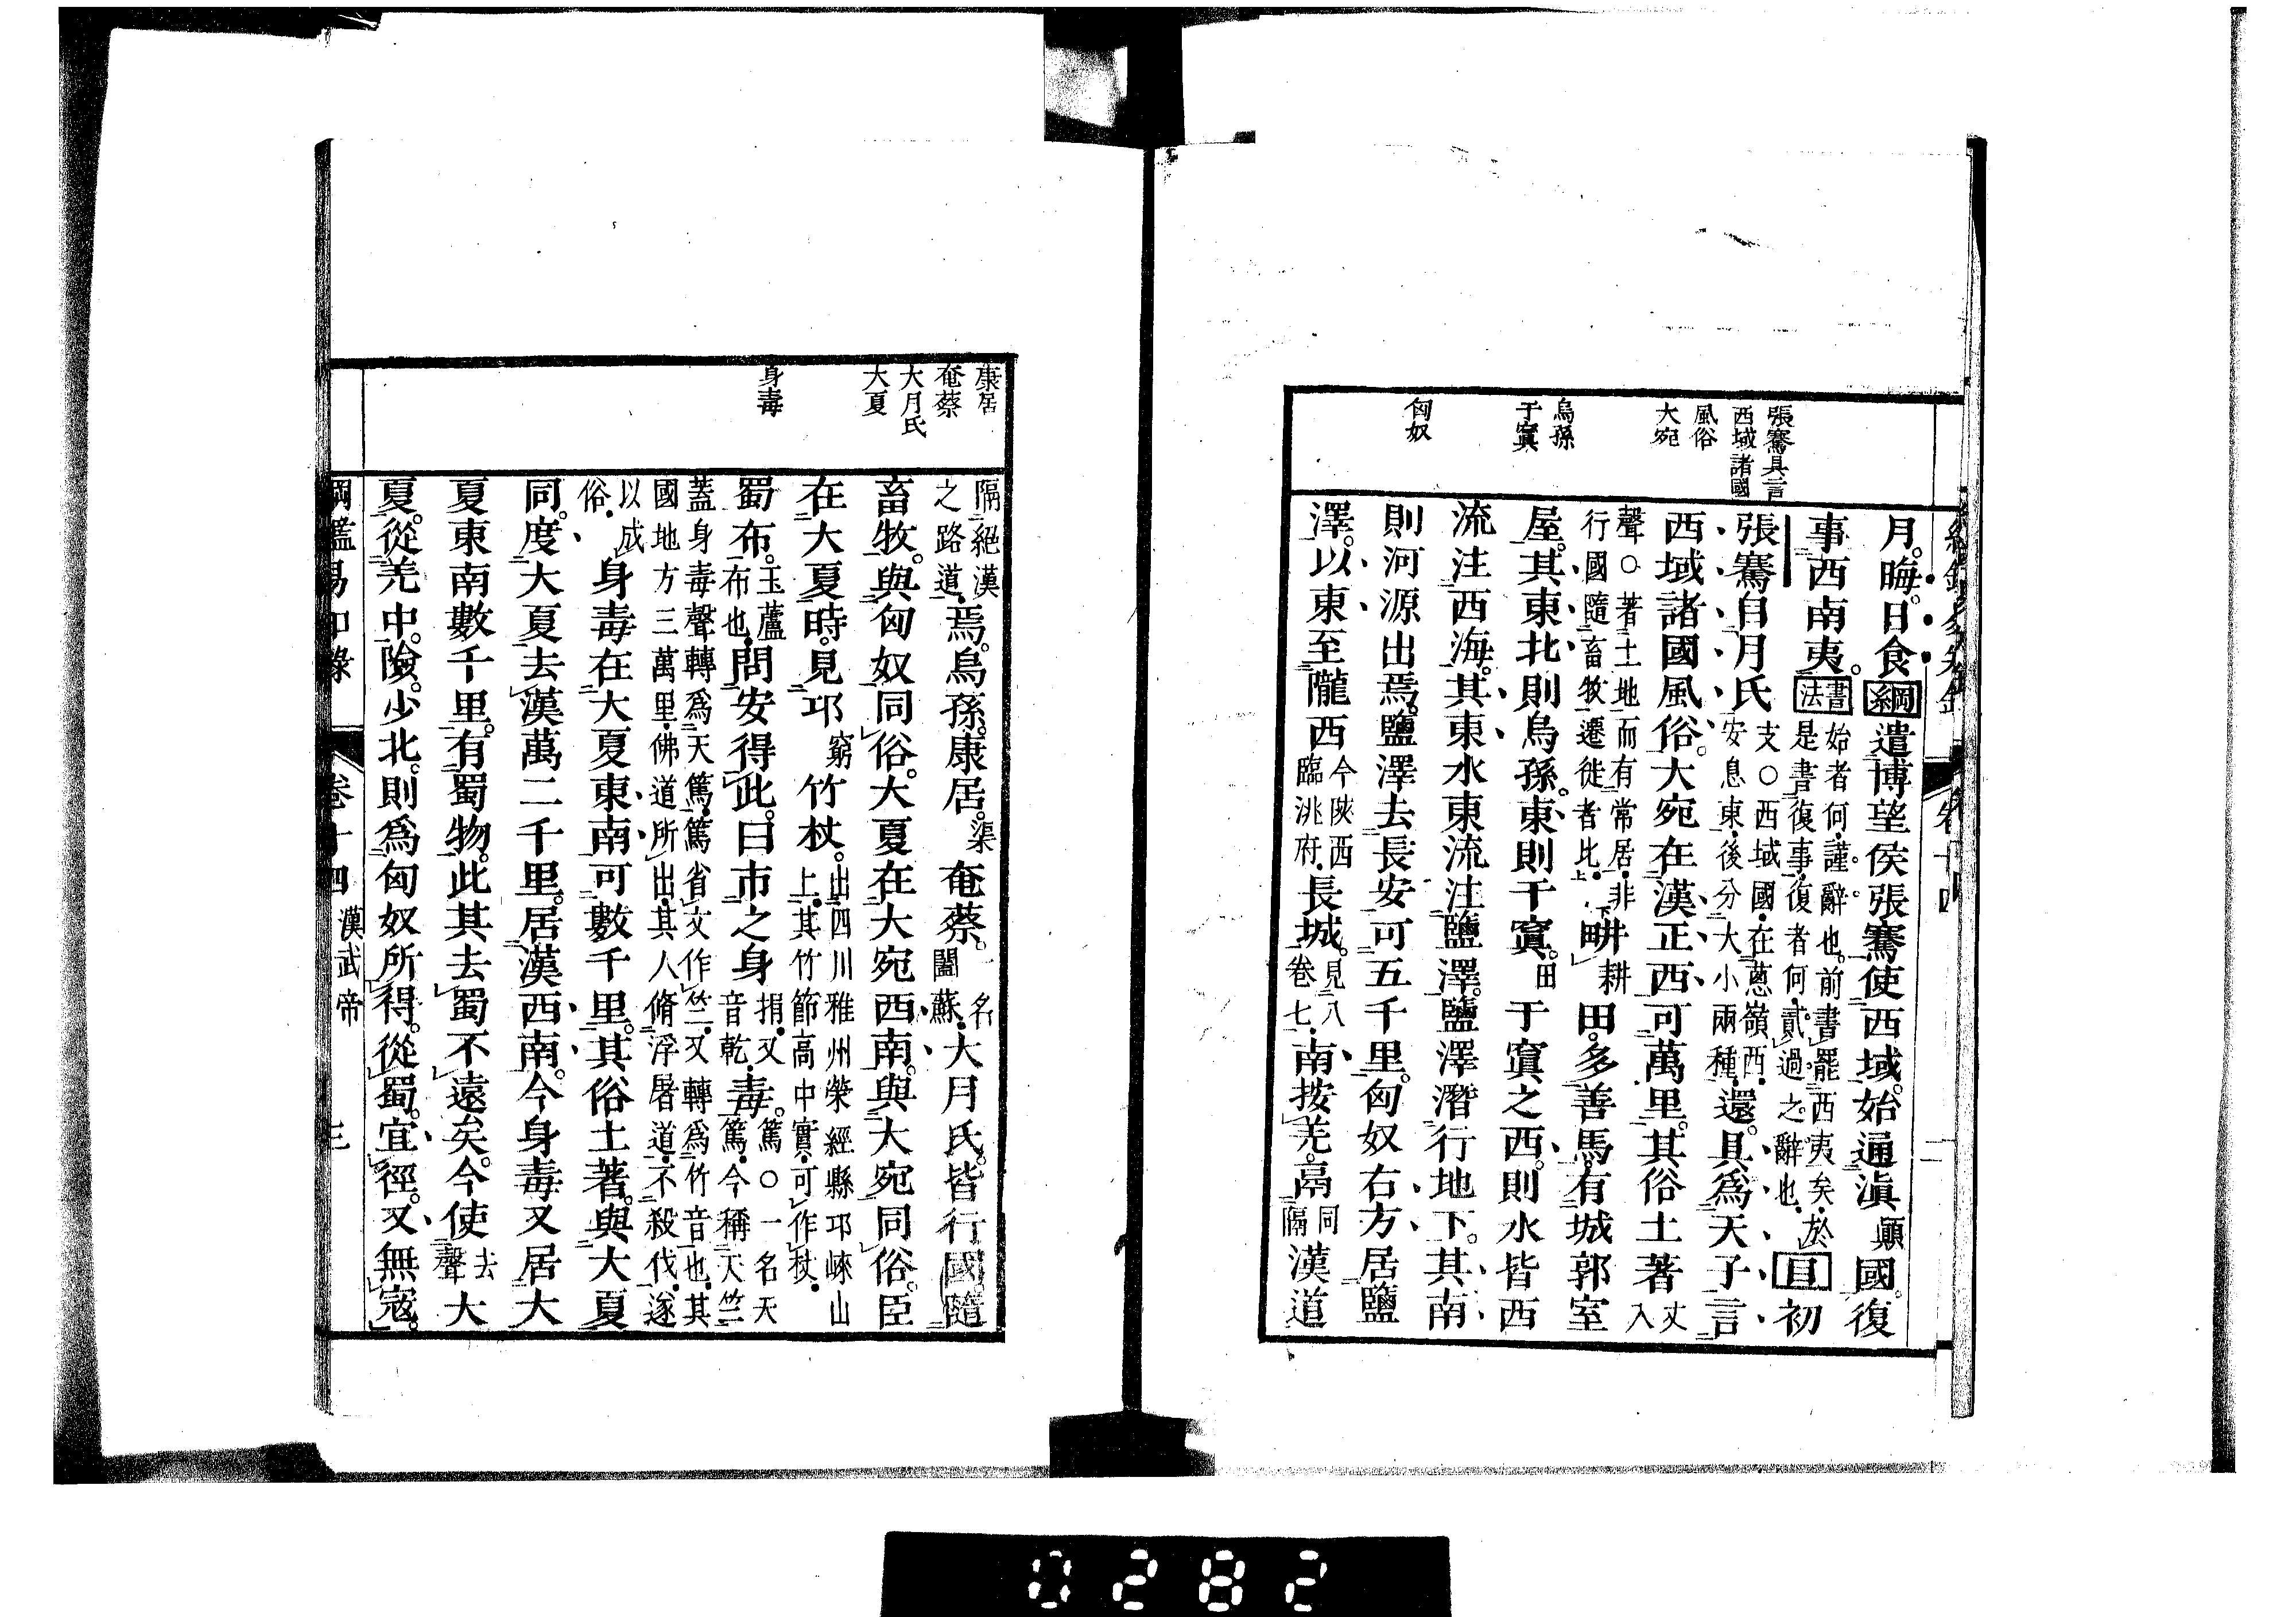 張騫具言
西域諸國
風俗
大宛
烏孫
于窴
匈奴
月。晦。日食綱遣博望侯張騫使西域。始通滇顚國。復
事西南夷。書法始者何。謹辭也。前書罷西夷矣。於是書復事。復者何。貳過之辭也。目初
張騫自月氏支○西域國。在蔥嶺西。安息東。後分大小兩種。還。具爲天子言
西域諸國風俗。大宛在漢正西。可萬里。其俗土著丈入
聲○著土地而有常居。非行國隨畜牧遷徙者比。畊耕田。多善馬。有城郭室
屋。其東北則烏孫。東則于窴。田于窴之西。則水皆西
流注西海。其東水東流注鹽澤。鹽澤潛行地下。其南
則河源出焉。鹽澤去長安可五千里。匈奴右方居鹽
澤。以東至隴西今陝西臨洮府。長城。見八卷七。南按羌。鬲同隔漢道
康居
奄蔡
大月氏
大夏
身毒
隔絕漢之路道。焉。烏孫。康居。渠奄蔡。一名闔蘇。大月氏。皆行國隨
畜牧。與匈奴同俗。大夏在大宛西南。與大宛同俗。臣
在大夏時。見邛窮竹杖。出四川雅州榮經縣邛崍山上。其竹節高中實。可作杖。
蜀布。玉蘆布也。問安得此。曰市之身捐。又音乾。毒。篤○一名天篤。今稱天竺
蓋身毒聲轉爲天篤。篤省文作竺。又轉爲竹音也。其國地方三萬里。佛道所出。其人脩浮屠道。不殺伐。遂
以成俗。身毒在大夏東南。可數千里。其俗土著。與大夏
同。度大夏去漢萬二千里。居漢西南。今身毒又居大
夏東南數千里。有蜀物。此其去蜀不遠矣。今使去聲大
夏。從羌中。險。少北。則爲匈奴所得。從蜀。宜徑。又無寇。
綱鑑易知錄 卷十四 漢武帝 三
0282